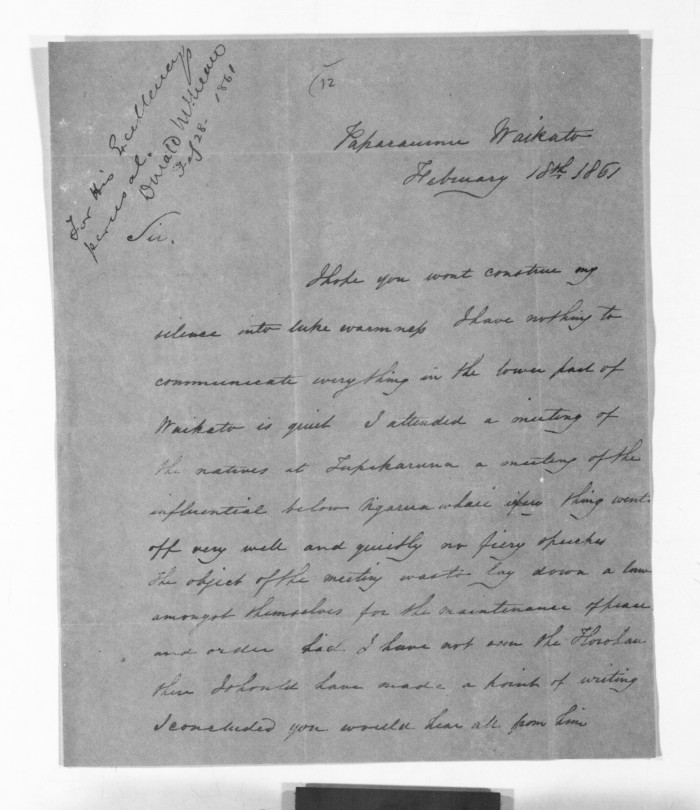 For His Excellency's
perusal.
Donald McLean
Feb 28 - 1861
12
Paparaumu Waikato
February 18th 1861
Sir.
I hope you wont construe my
silence into luke warmness I have nothing to
communicate everything in the lower part of
Waikato is quiet I attended a meeting of
the natives at Tupikaruna a meeting of the
influential below Ngaruawhaii thing went
off very well and quietly no fiery speeches
the object of the meeting was to lay down a law
amongst themselves for the maintenance of peace
and order had I have not seen the
there I should have made a point of writing
I concluded you would hear all from him